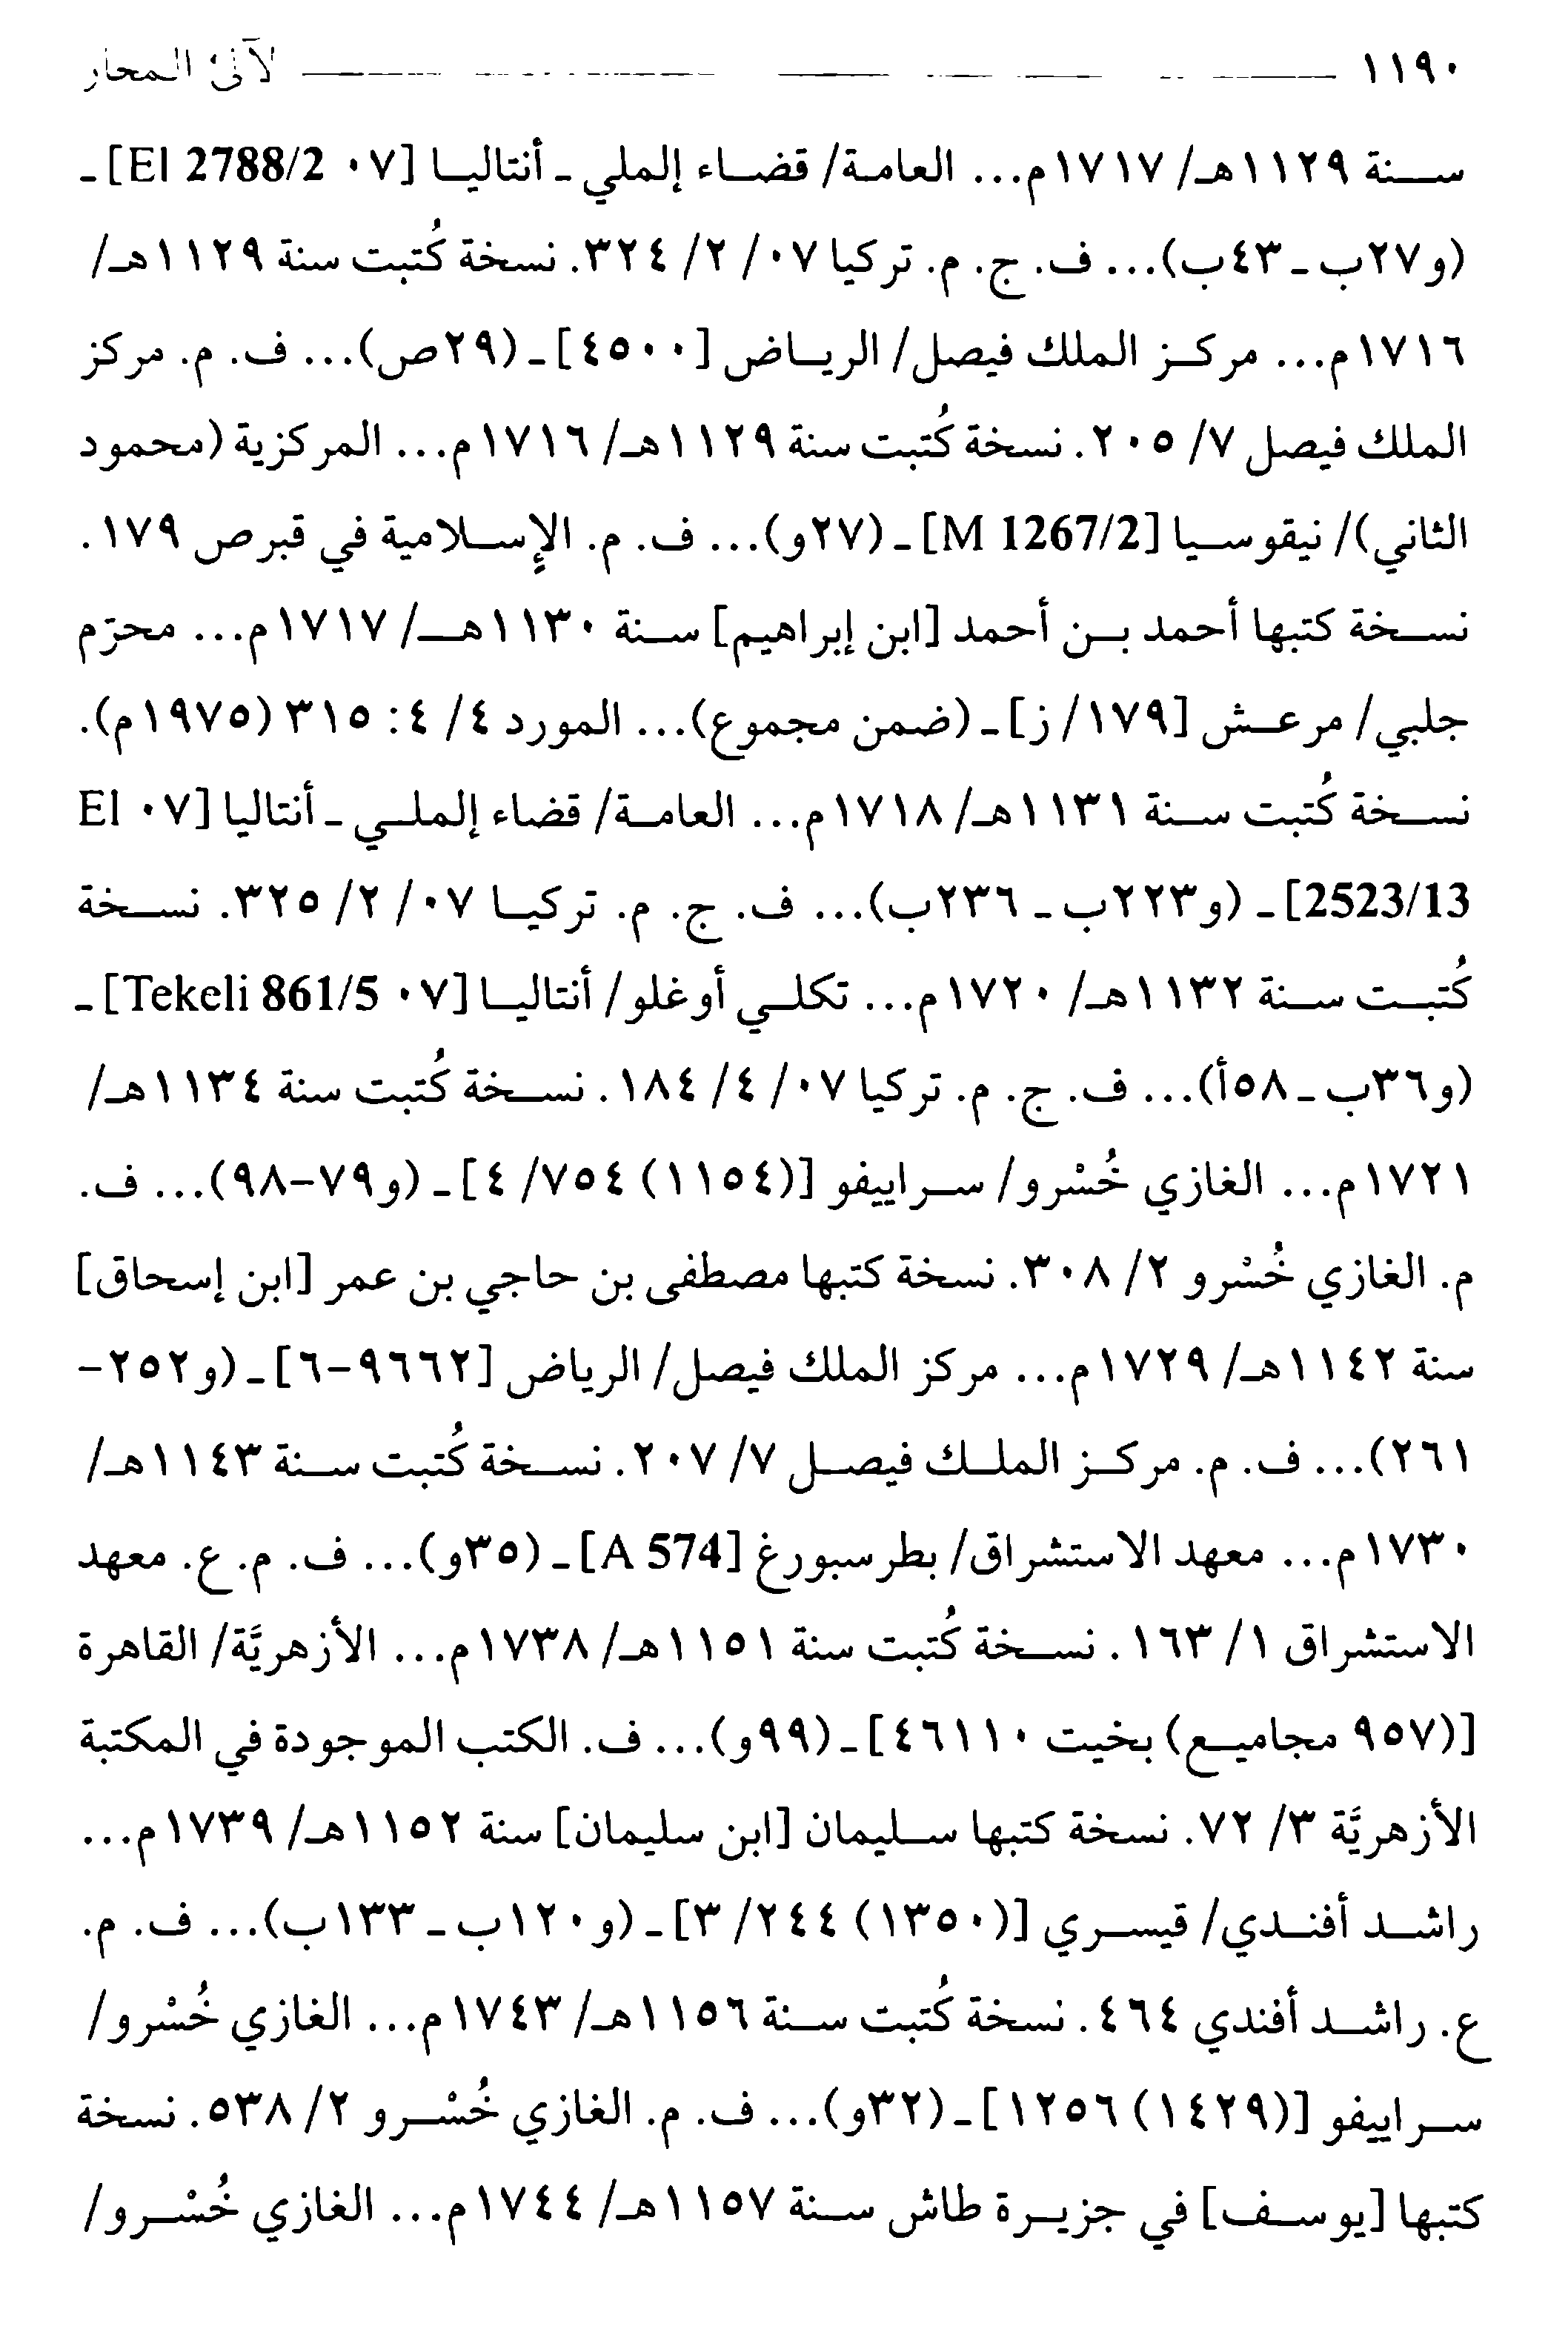 ١١٩٠ لآلئ المحار
سنة ١١٢٩هـ/ ١٧١٧م... العامة/ قضاء إلملي ـ أنتاليا [٠٧ El 2788/2] ـ
(و٢٧ب ـ ٤٣ب)... ف. ج. م. تركيا ٠٧/ ٢/ ٣٢٤. نسخة كُتبت سنة ١١٢٩هـ/
١٧١٦م... مركز الملك فيصل/ الرياض [٤٥٠٠] ـ (٢٩ص)... ف. م. مركز
الملك فيصل ٧/ ٢٠٥. نسخة كُتبت سنة ١١٢٩هـ/ ١٧١٦م... المركزية (محمود
الثاني)/ نيقوسيا [M 1267/2] ـ (٢٧و)... ف. م. الإسلامية في قبرص ١٧٩.
نسخة كتبها أحمد بن أحمد [ابن إبراهيم] سنة ١١٣٠هـ/ ١٧١٧م... محرّم
جلبي/ مرعش [١٧٩/ ز] ـ (ضمن مجموع)... المورد ٤/ ٤: ٣١٥ (١٩٧٥م).
نسخة كُتبت سنة ١١٣١هـ/ ١٧١٨م... العامة/ قضاء إلملي ـ أنتاليا [٠٧ El
2523/13] ـ (و٢٢٣ب ـ ٢٣٦ب)... ف. ج. م. تركيا ٠٧/ ٢/ ٣٢٥. نسخة
كُتبت سنة ١١٣٢هـ/ ١٧٢٠م... تكلي أوغلو/ أنتاليا [٠٧ Tekeli 861/5] ـ
(و٣٦ب ـ ٥٨أ)... ف. ج. م. تركيا ٠٧/ ٤/ ١٨٤. نسخة كُتبت سنة ١١٣٤هـ/
١٧٢١م... الغازي خُسْرو/ سراييفو [(١١٥٤) ٧٥٤/ ٤] ـ (و٧٩-٩٨)... ف.
م. الغازي خُسْرو ٢/ ٣٠٨. نسخة كتبها مصطفى بن حاجي بن عمر [ابن إسحاق]
سنة ١١٤٢هـ/ ١٧٢٩م... مركز الملك فيصل/ الرياض [٩٦٦٢-٦] ـ (و٢٥٢-
٢٦١)... ف. م. مركز الملك فيصل ٧/ ٢٠٧. نسخة كُتبت سنة ١١٤٣هـ/
١٧٣٠م... معهد الاستشراق/ بطرسبورغ [A 574] ـ (٣٥و)... ف. م. ع. معهد
الاستشراق ١/ ١٦٣. نسخة كُتبت سنة ١١٥١هـ/ ١٧٣٨م... الأزهريَّة/ القاهرة
[(٩٥٧ مجاميع) بخيت ٤٦١١٠] ـ (٩٩و)... ف. الكتب الموجودة في المكتبة
الأزهريَّة ٣/ ٧٢. نسخة كتبها سليمان [ابن سليمان] سنة ١١٥٢هـ/ ١٧٣٩م...
راشد أفندي/ قيسري [(١٣٥٠) ٢٤٤/ ٣] ـ (و١٢٠ب ـ ١٣٣ب)... ف. م.
ع. راشد أفندي ٤٦٤. نسخة كُتبت سنة ١١٥٦هـ/ ١٧٤٣م... الغازي خُسْرو/
سراييفو [(١٤٢٩) ١٢٥٦] ـ (٣٢و)... ف. م. الغازي خُسْرو ٢/ ٥٣٨. نسخة
كتبها [يوسف] في جزيرة طاش سنة ١١٥٧هـ/ ١٧٤٤م... الغازي خُسْرو/